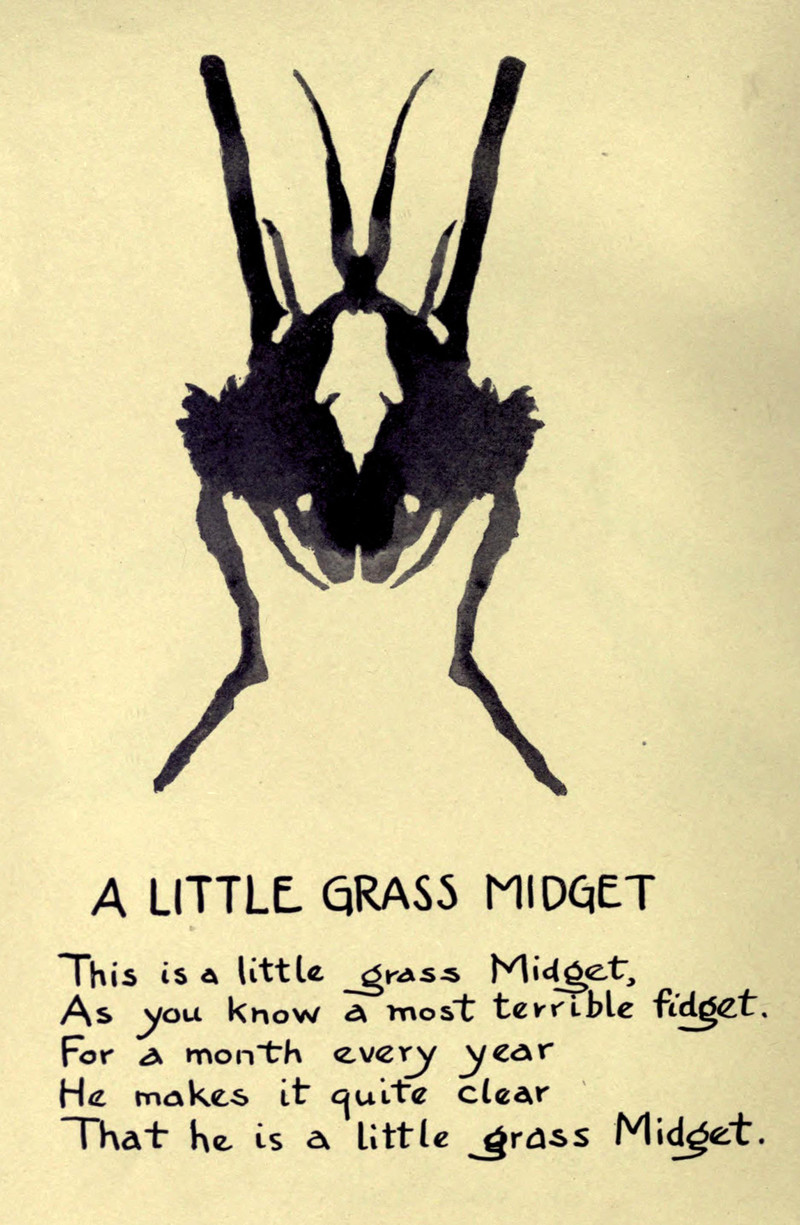 A LITTLE GRASS MIDGET
This is a little grass Midget,
As you know a most terrible fidget.
For a month every year
He makes it quite clear
That he is a little grass Midget.